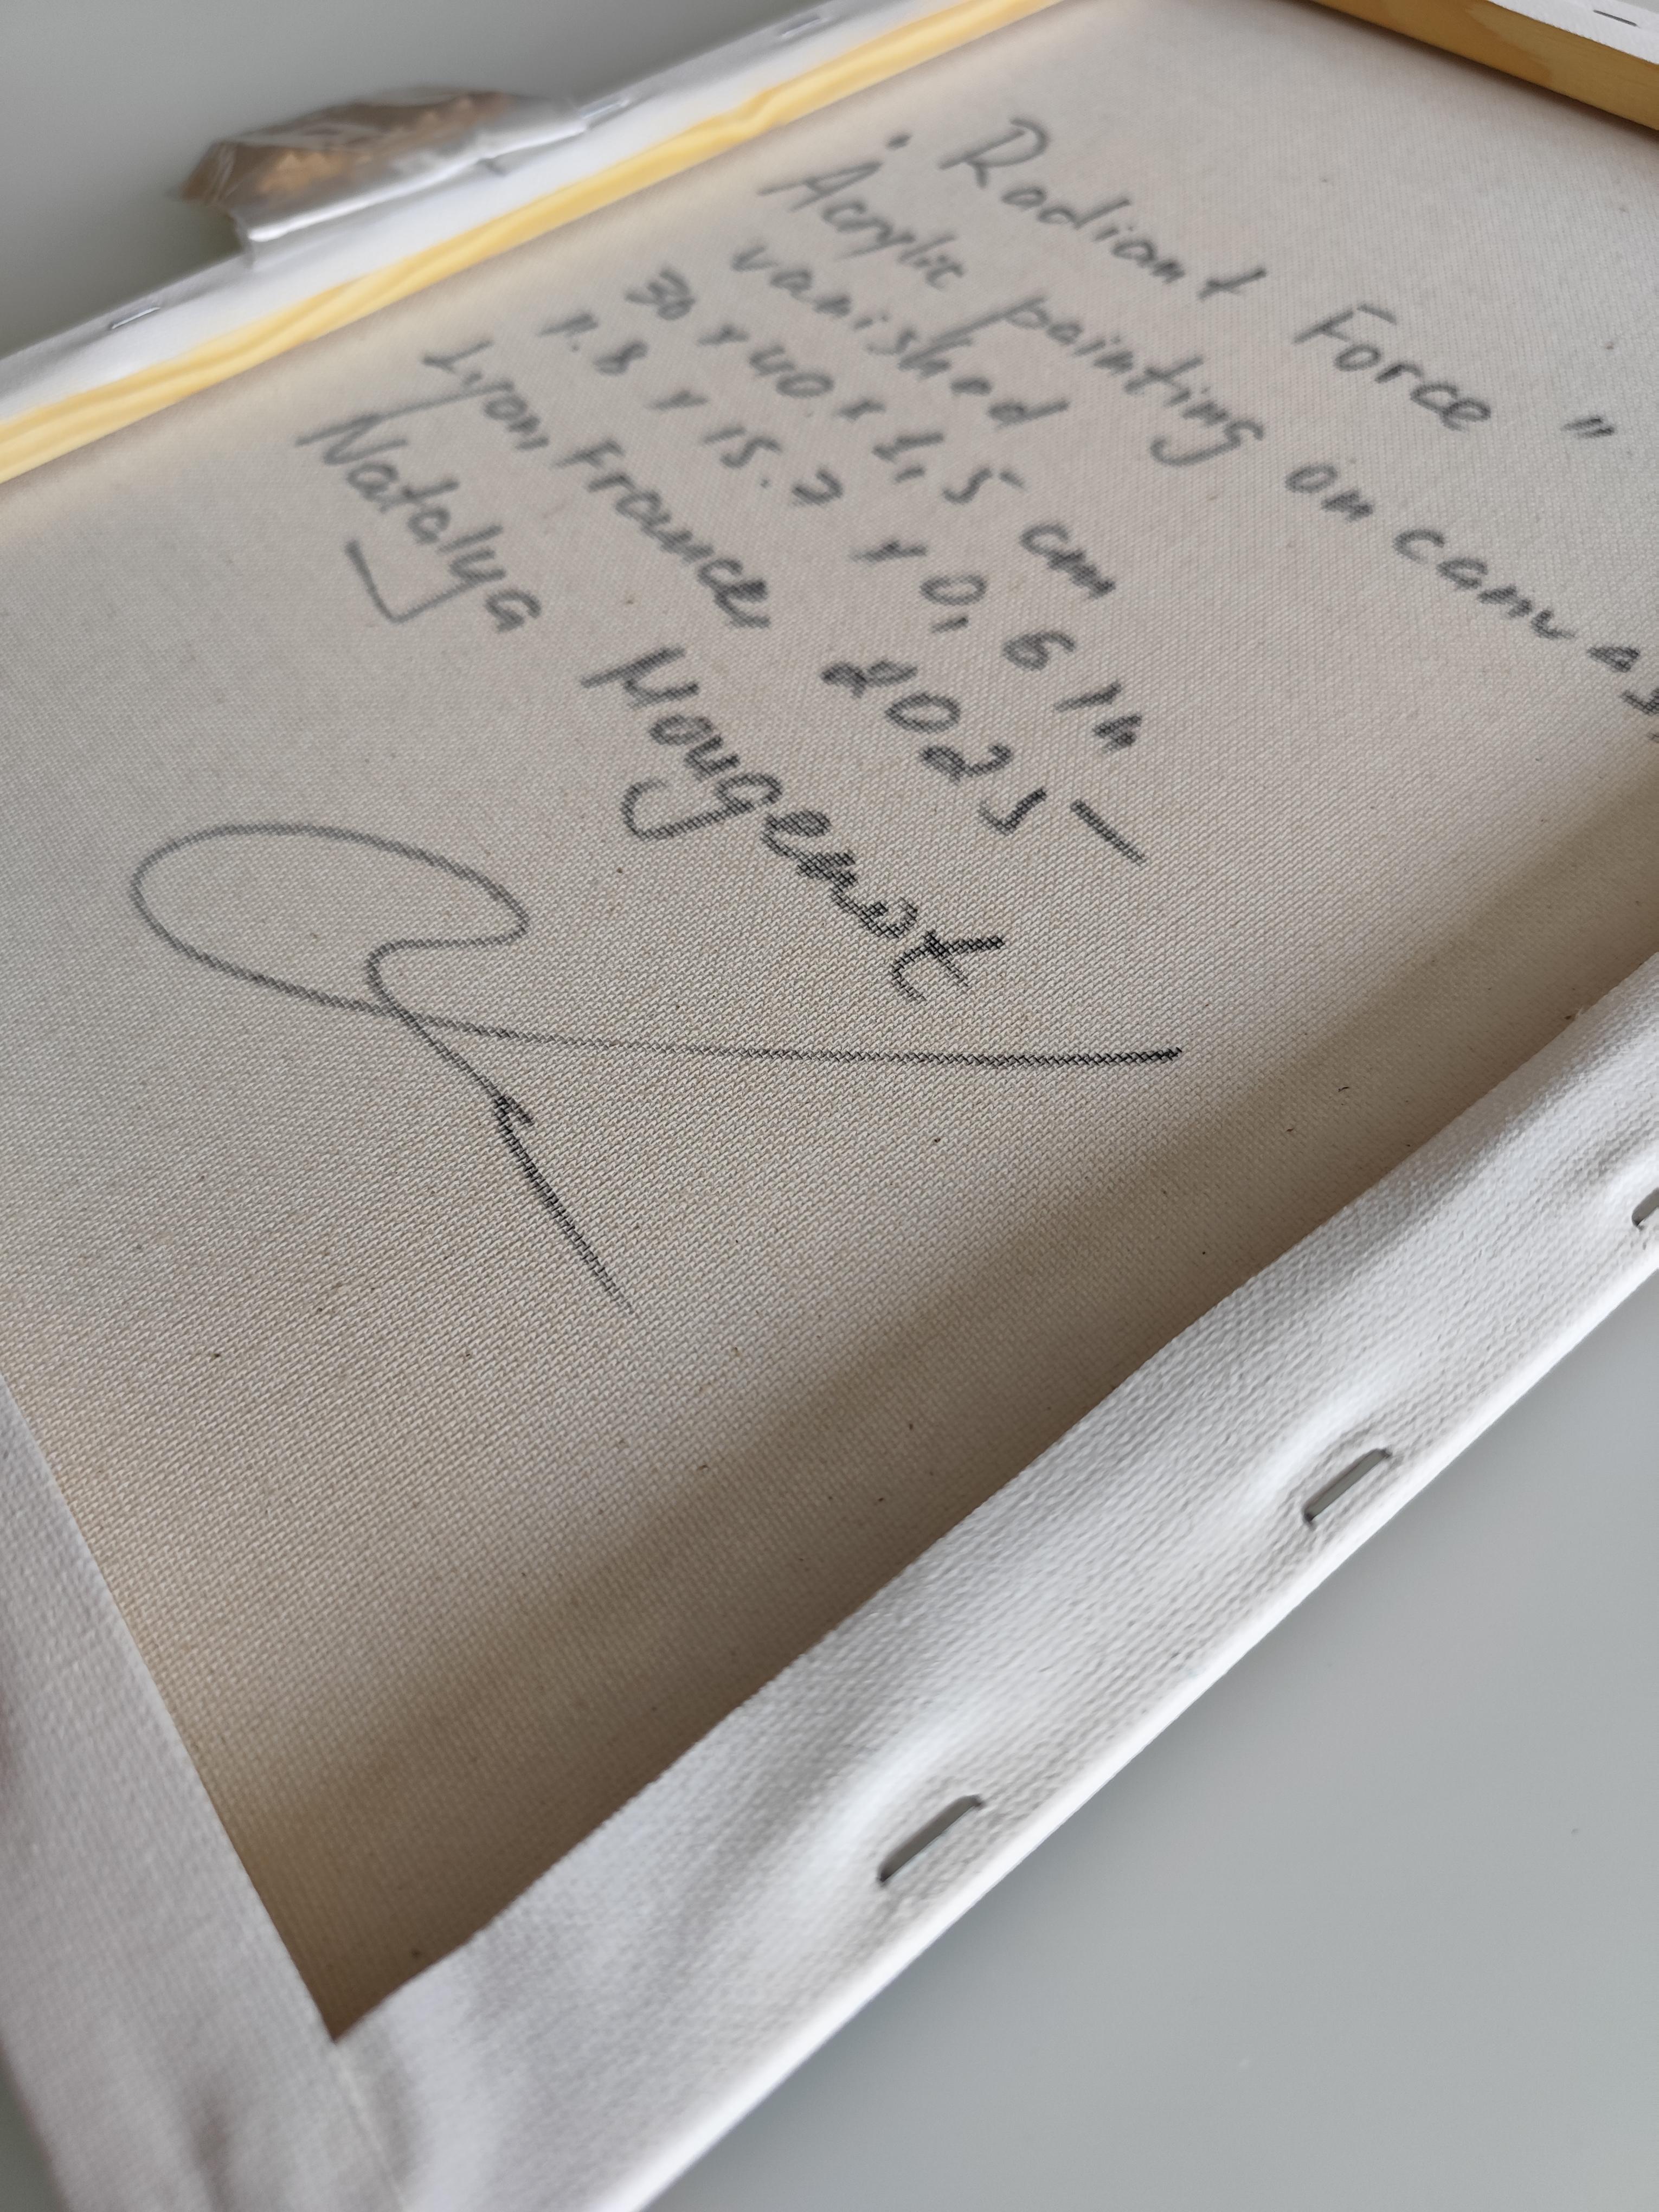 " Radiant Force "
Acrylic painting on canvas,
vanished
30 x 40 x 1,5 cm
11.8 x 15.7 x 0,6 in
Lyon, France, 2025
Natalya Mougenot